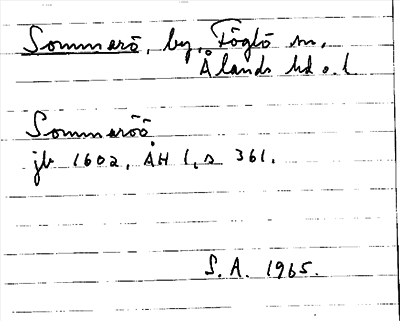 Sommarö, by, Föglö sn,
Ålands hd o. l
Sommaröö
jb 1602, ÅH 1, s 361.
S. A. 1965.